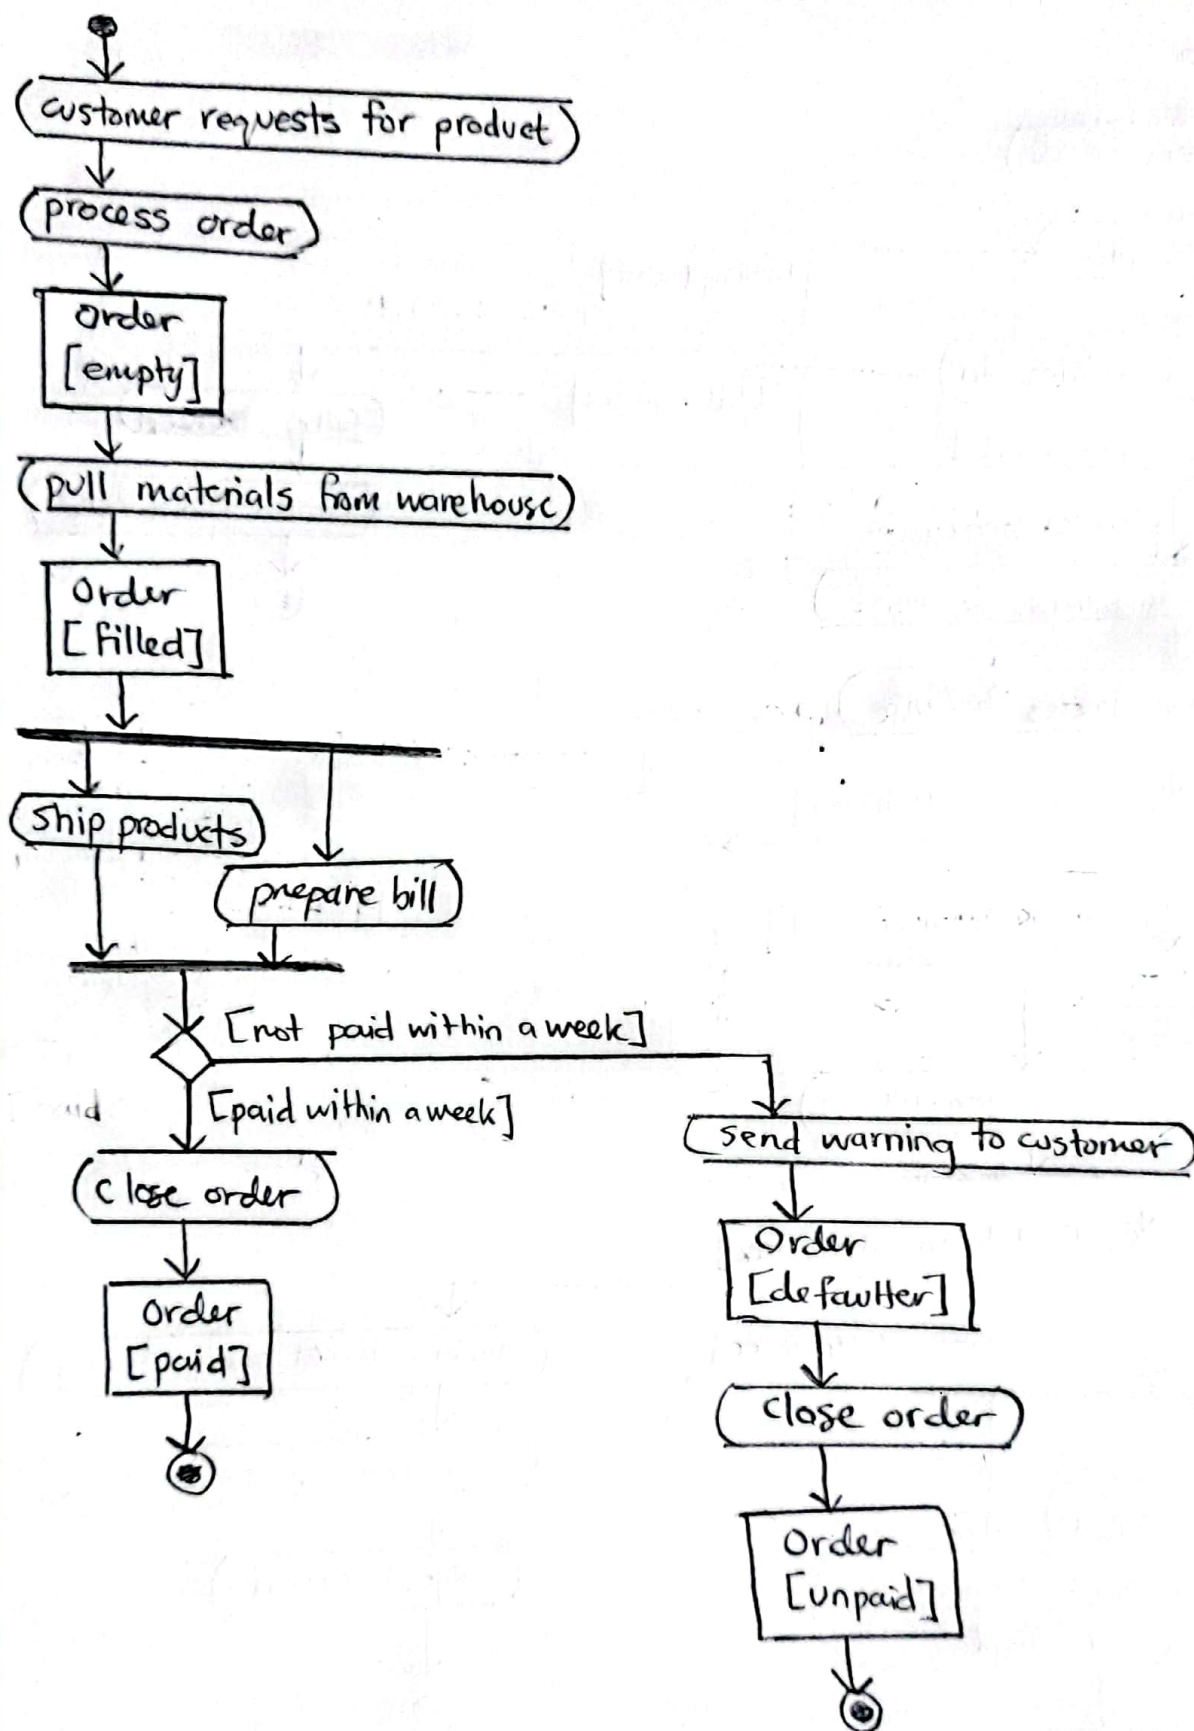 customer requests for product
process order
Order
[empty]
pull materials from warehouse
Order
[filled]
ship products
prepare bill
[not paid within a week]
[paid within a week]
send warning to customer
close order
Order
[defaulter]
Order
[paid]
close order
Order
[unpaid]